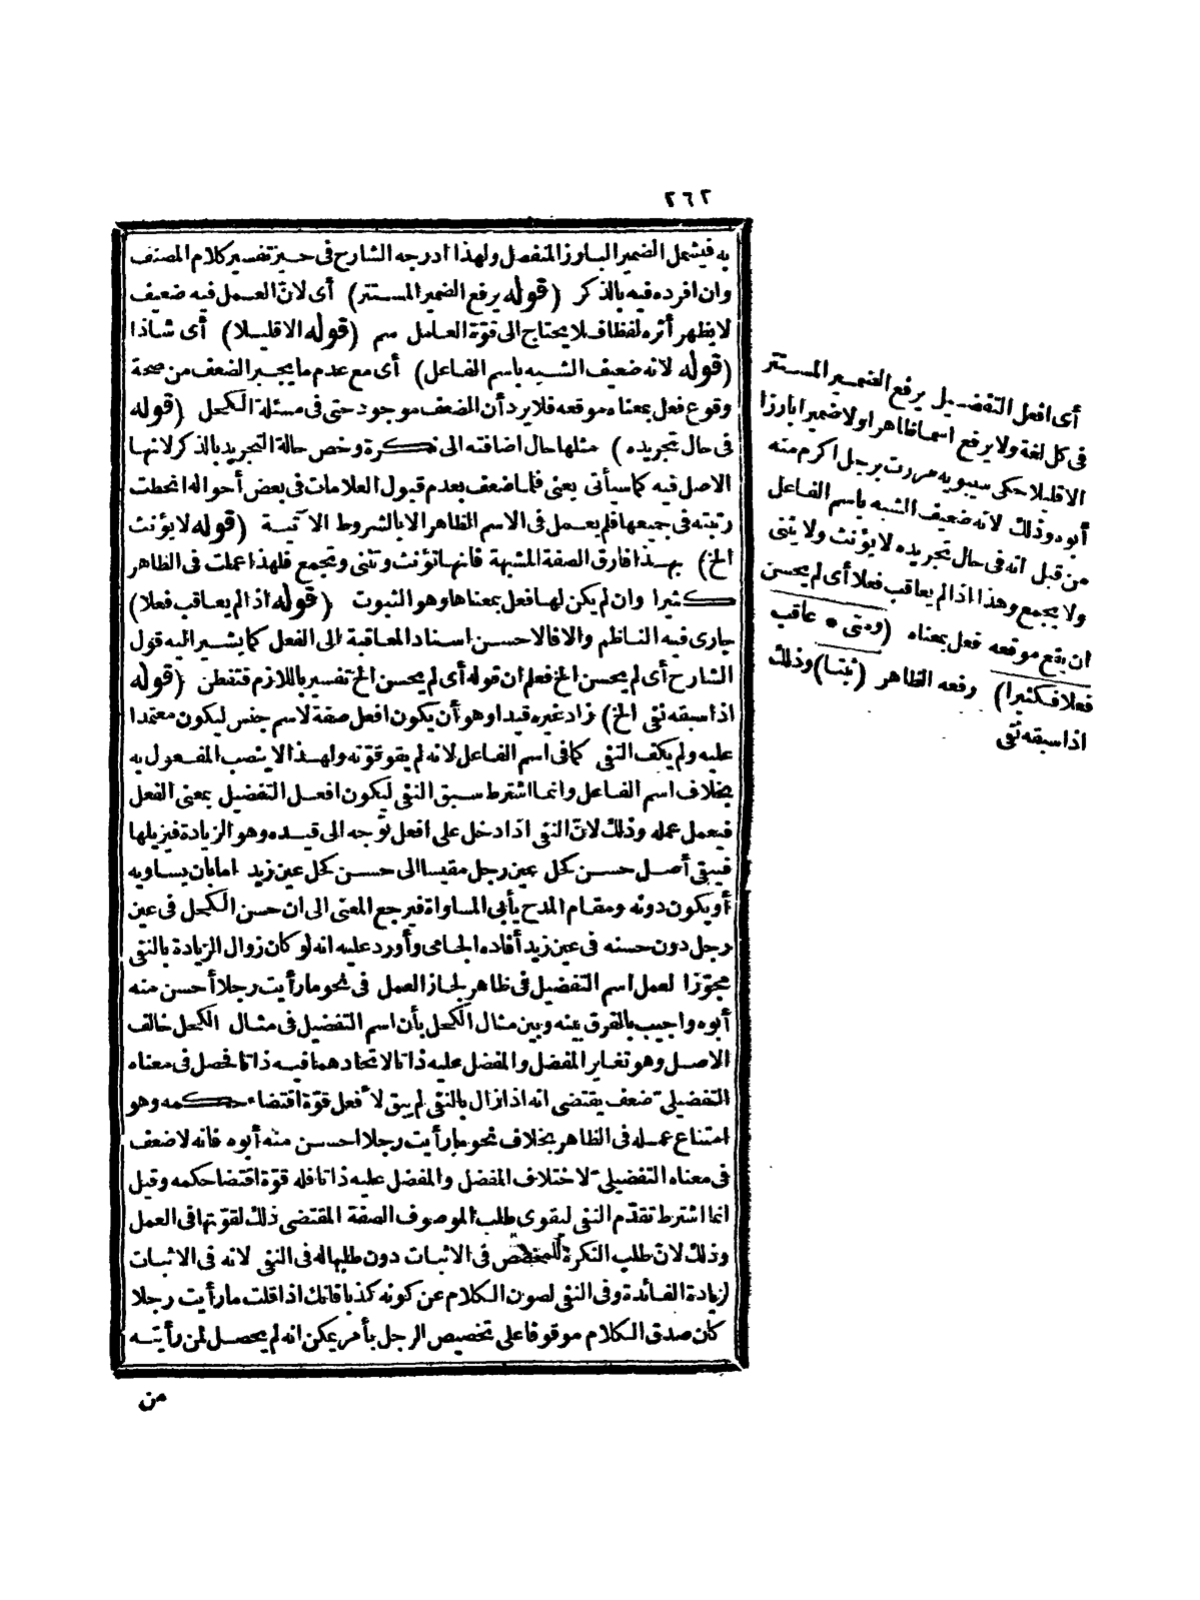 ٢٦٢
به فيشمل الضمير البارز المنفصل ولهذا ادرجه الشارح فى حيز تفسير كلام المصنف
وان افرده فيه بالذكر (قوله يرفع الضمير المستتر) أى لان العمل فيه ضعيف
لا يظهر أثره لفظا فلا يحتاج الى قوّة العامل سم (قوله الاقليلا) أى شاذا
(قوله لانه ضعيف الشبه باسم الفاعل) أى مع عدم ما يجبر الضعف من صحة
وقوع فعل بمعناه موقعه فلا يرد أن المضعف موجود حتى فى مسئلة الكحل (قوله
فى حال تجريده) مثلها حال اضافته الى نكرة وخص حالة التجريد بالذكر لانها
الاصل فيه كما سيأتى يعنى فلما ضعف بعدم قبول العلامات فى بعض أحواله انحطت
رتبته فى جميعها فلم يعمل فى الاسم الظاهر الا بالشروط الآتية (قوله لا يؤنث
الخ) بهذا فارق الصفة المشبهة فانها تؤنث وتثنى وتجمع فلهذا عملت فى الظاهر
كثيرا وان لم يكن لها فعل بمعناها وهو الثبوت (قوله اذا لم يعاقب فعلا)
جارى فيه الناظم والا فالاحسن اسناد المعاقبة الى الفعل كما يشير اليه قول
الشارح أى لم يحسن الخ فعلم ان قوله أى لم يحسن الخ تفسير باللازم فتفطن (قوله
اذا سبقه نفى الخ) زاد غيره قيدا وهو أن يكون افعل صفة لاسم جنس ليكون معتمدا
عليه ولم يكف النفى كما فى اسم الفاعل لانه لم يقو قوّته ولهذا لا ينصب المفعول به
بخلاف اسم الفاعل وانما اشترط سبق النفى ليكون افعل التفضيل بمعنى الفعل
فيعمل عمله وذلك لانّ النفى اذا دخل على افعل توّجه الى قيده وهو الزيادة فيزيلها
فيبقى أصل حسن كحل عين رجل مقيسا الى حسن كحل عين زيد اما بان يساويه
أو يكون دونه ومقام المدح يأبى المساواة فيرجع المعنى الى ان حسن الكحل فى عين
رجل دون حسنه فى عين زيد أفاده الجامى وأورد عليه انه لو كان زوال الزيادة بالنفى
مجوّزا لعمل اسم التفضيل فى ظاهر لجاز العمل فى نحو ما رأيت رجلا أحسن منه
أبوه واجيب بالفرق بينه وبين مثال الكحل بأن اسم التفضيل فى مثال الكحل خالف
الاصل وهو تغاير المفضل والمفضل عليه ذاتا لاتحادهما فيه ذاتا فحصل فى معناه
التفضيلىّ ضعف يقتضى انه اذا زال بالنفى لم يبق لأفعل قوّة اقتضاء حكمه وهو
امتناع عمله فى الظاهر بخلاف نحو ما رأيت رجلا احسن منه أبوه فانه لا ضعف
فى معناه التفضيلىّ لاختلاف المفضل والمفضل عليه ذاتا فله قوّة اقتضا حكمه وقيل
انما اشترط تقدّم النفى ليقوى طلب الموصوف الصفة المقتضى ذلك لقوّتها فى العمل
وذلك لانّ طلب النكرة للمخصص فى الاثبات دون طلبها له فى النفى لانه فى الاثبات
لزيادة الفائدة وفى النفى لصون الكلام عن كونه كذبا فانك اذا قلت ما رأيت رجلا
كان صدق الكلام موقوفا على تخصيص الرجل بأمر يمكن انه لم يحصل لمن رأيته
من
أى افعل التفضيل يرفع الضمير المستتر
فى كل لغة ولا يرفع اسما ظاهرا ولا ضميرا بارزا
الاقليلا حكى سيبويه مررت برجل اكرم منه
أبوه وذلك لانه ضعيف الشبه باسم الفاعل
من قبل انه فى حال تجريده لا يؤنث ولا يثنى
ولا يجمع وهذا اذا لم يعاقب فعلا أى لم يحسن
ان يقع موقعه فعل بمعناه (ومتى * عاقب
فعلا فكثيرا) رفعه الظاهر (ثبتا) وذلك
اذا سبقه نفى